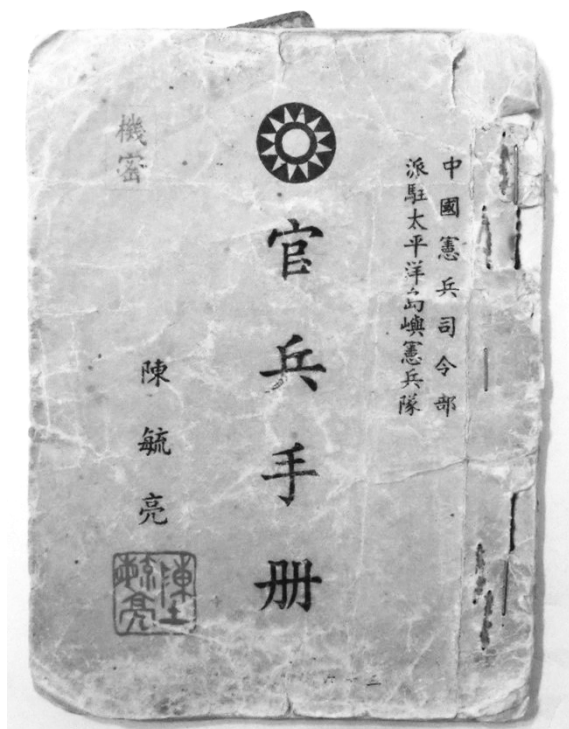 中國憲兵司令部
派駐太平洋島嶼憲兵隊
官兵手册
機密
陳毓亮